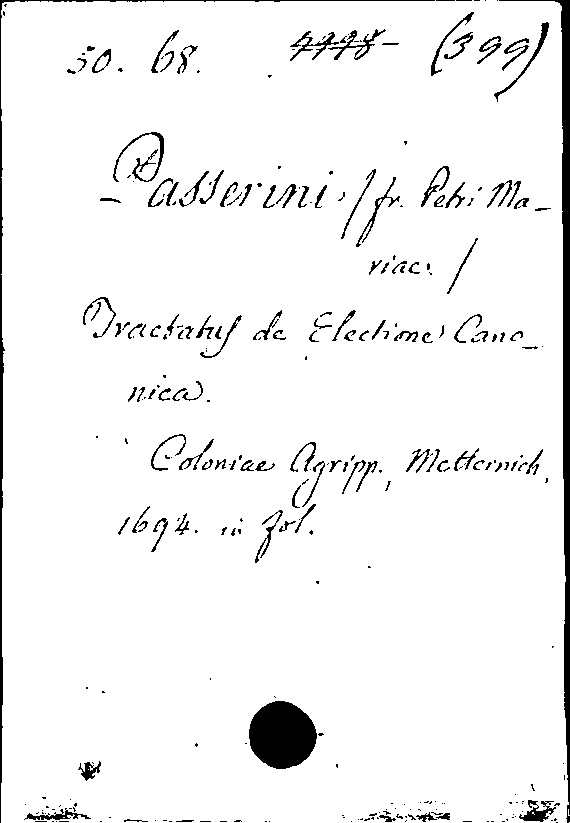 50. 68. (399)
Passerini, / fr. Petri Ma-
riae. /
Tractatus de Electione Cano-
nica.
Coloniae Agripp., Metternich,
1694. in fol.